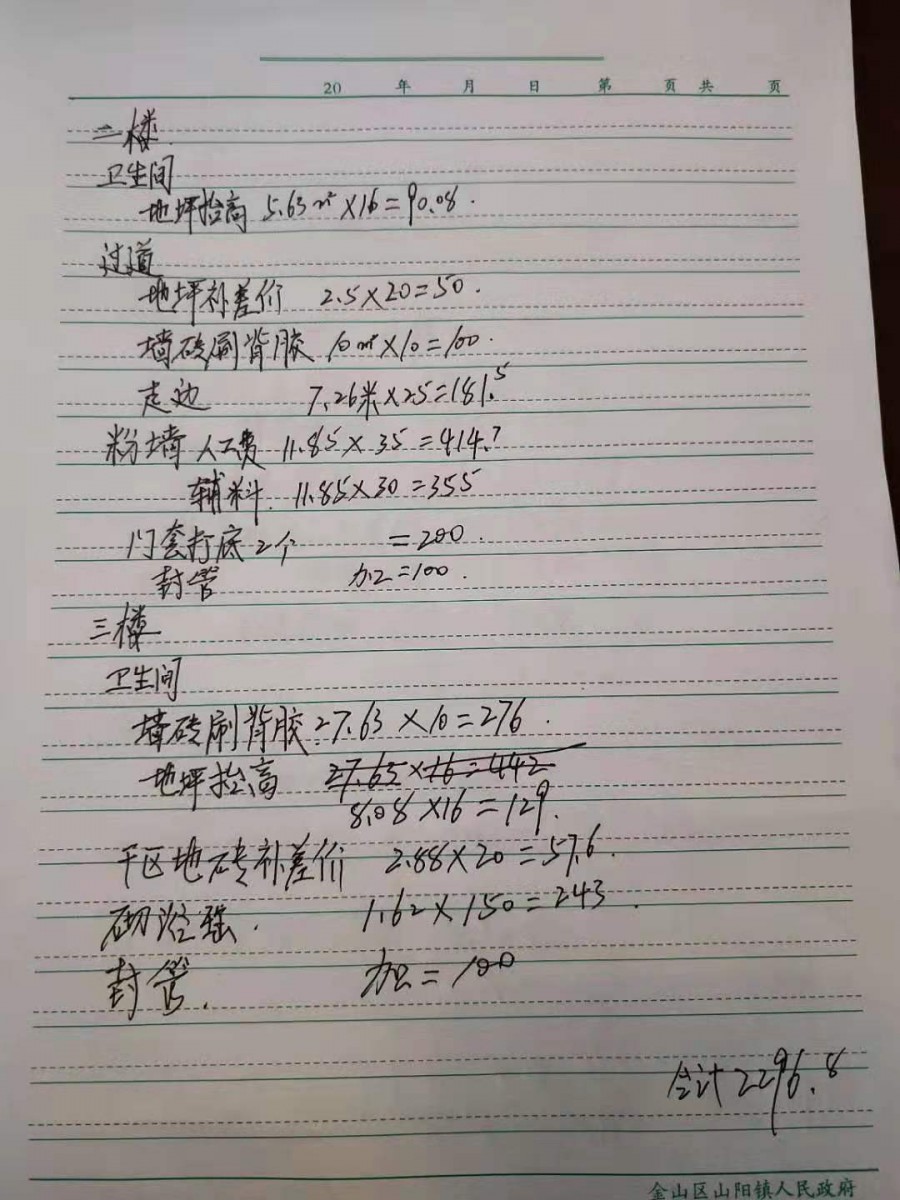 20 年 月 日 第 页 共 页
二楼.
卫生间
地坪抬高 5.63m²×16=90.08.
过道
地坪补差价 2.5×20=50.
墙砖刷背胶 10m²×10=100.
走边 7.26米×25=181.5
粉墙 人工费 11.85×35=414.7
辅料. 11.85×30=355
门套打底2个 =200.
封管 加工=100.
三楼
卫生间
墙砖刷背胶 27.63×10=276.
地坪抬高 27.65×16=442
8.08×16=129.
干区地砖补差价 2.88×20=57.6.
砌 1.62×150=243.
封管. =100
合计2296.8
金山区山阳镇人民政府